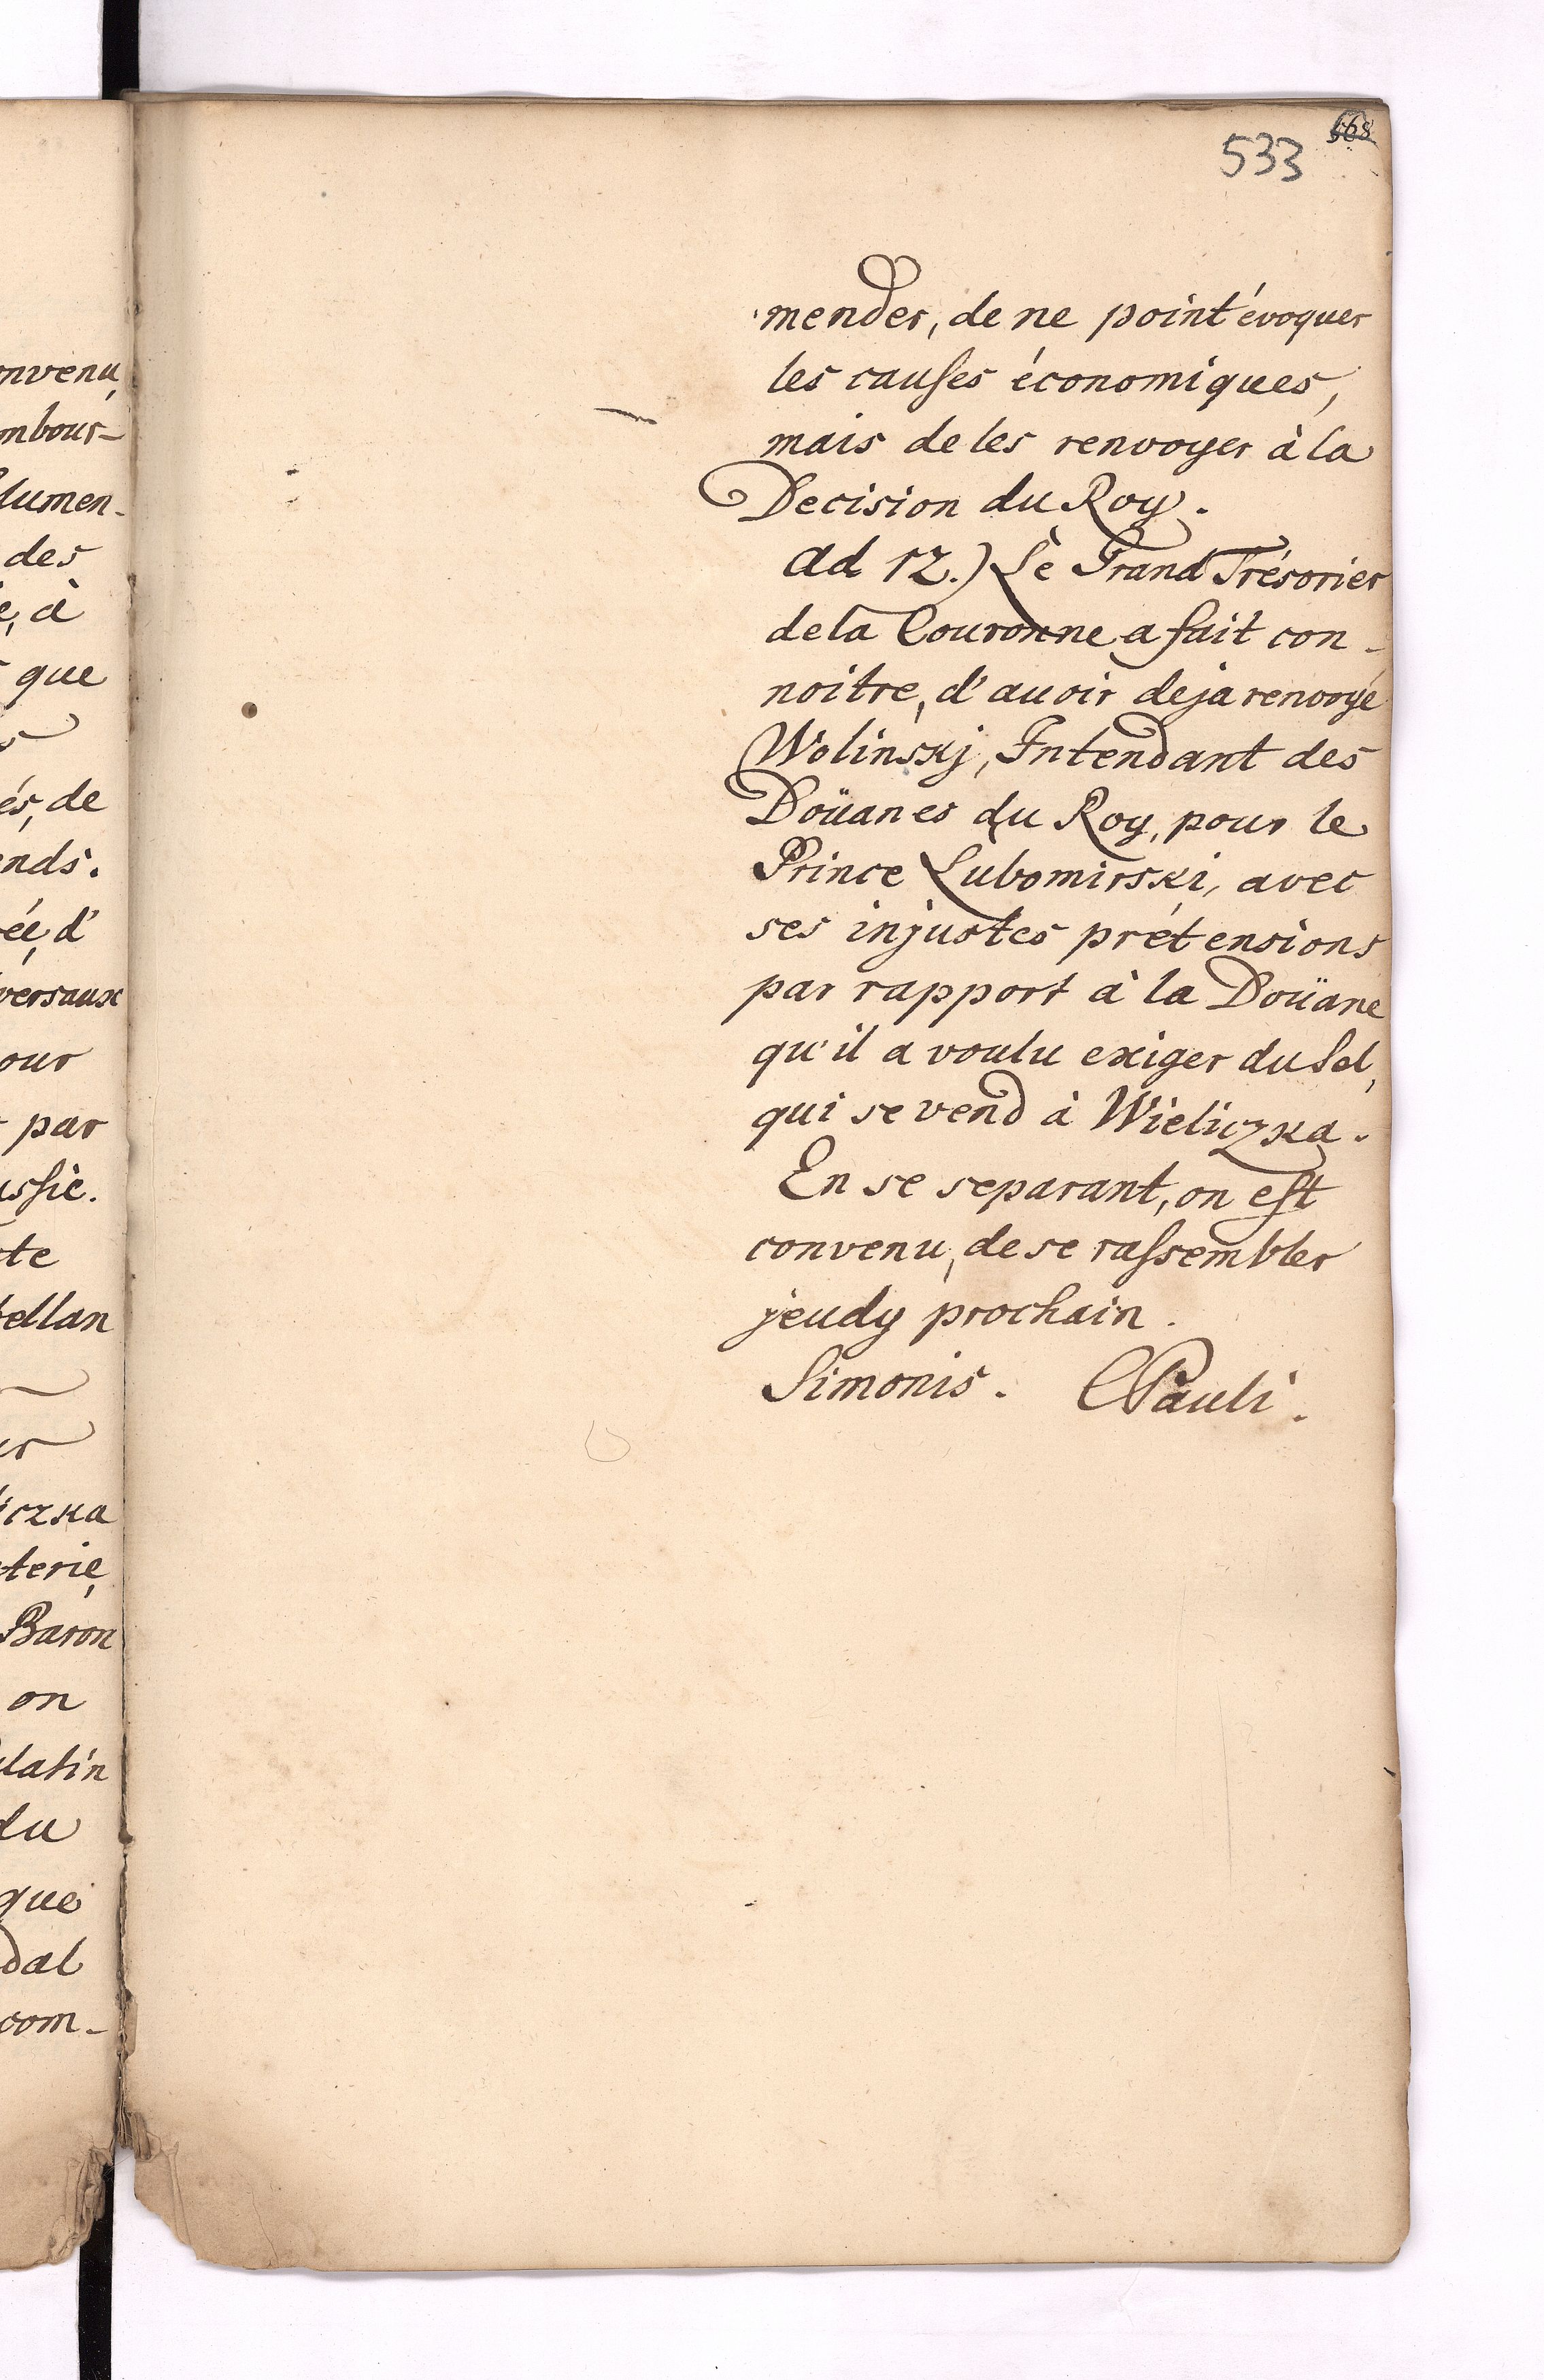 onvenu,
mbour-
lumen-
des
e, à
que
és, de
ends.
ée, d'
versaux
our
par
ussie.
te
tellan
iczka
terie,
Baron
on
latin
du
que
dal
com-
533 568
mender, de ne point évoquer
les causes économiques,
mais de les renvoyer à la
Decision du Roy.
ad 12.) Le Grand Trésorier
de la Couronne a fait con-
noitre, d'avoir deja renvoyé
Wolinskj, Intendant des
Doüanes du Roy, pour le
Prince Lubomirski, avec
ses injustes prétensions
par rapport à la Doüane
qu'il a voulu exiger du Sel,
qui se vend à Wieliczka.
En se separant, on est
convenu, de se rassembler
jeudy prochain.
Simonis. CPauli.